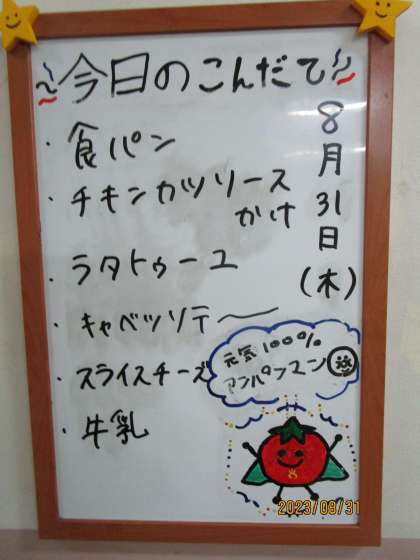 今日のこんだて
8月31日(木)
・食パン
・チキンカツソース
かけ
・ラタトゥーユ
・キャベツソテー
・スライスチーズ
・牛乳
元気100%
アンパンマン
8
2023/08/31